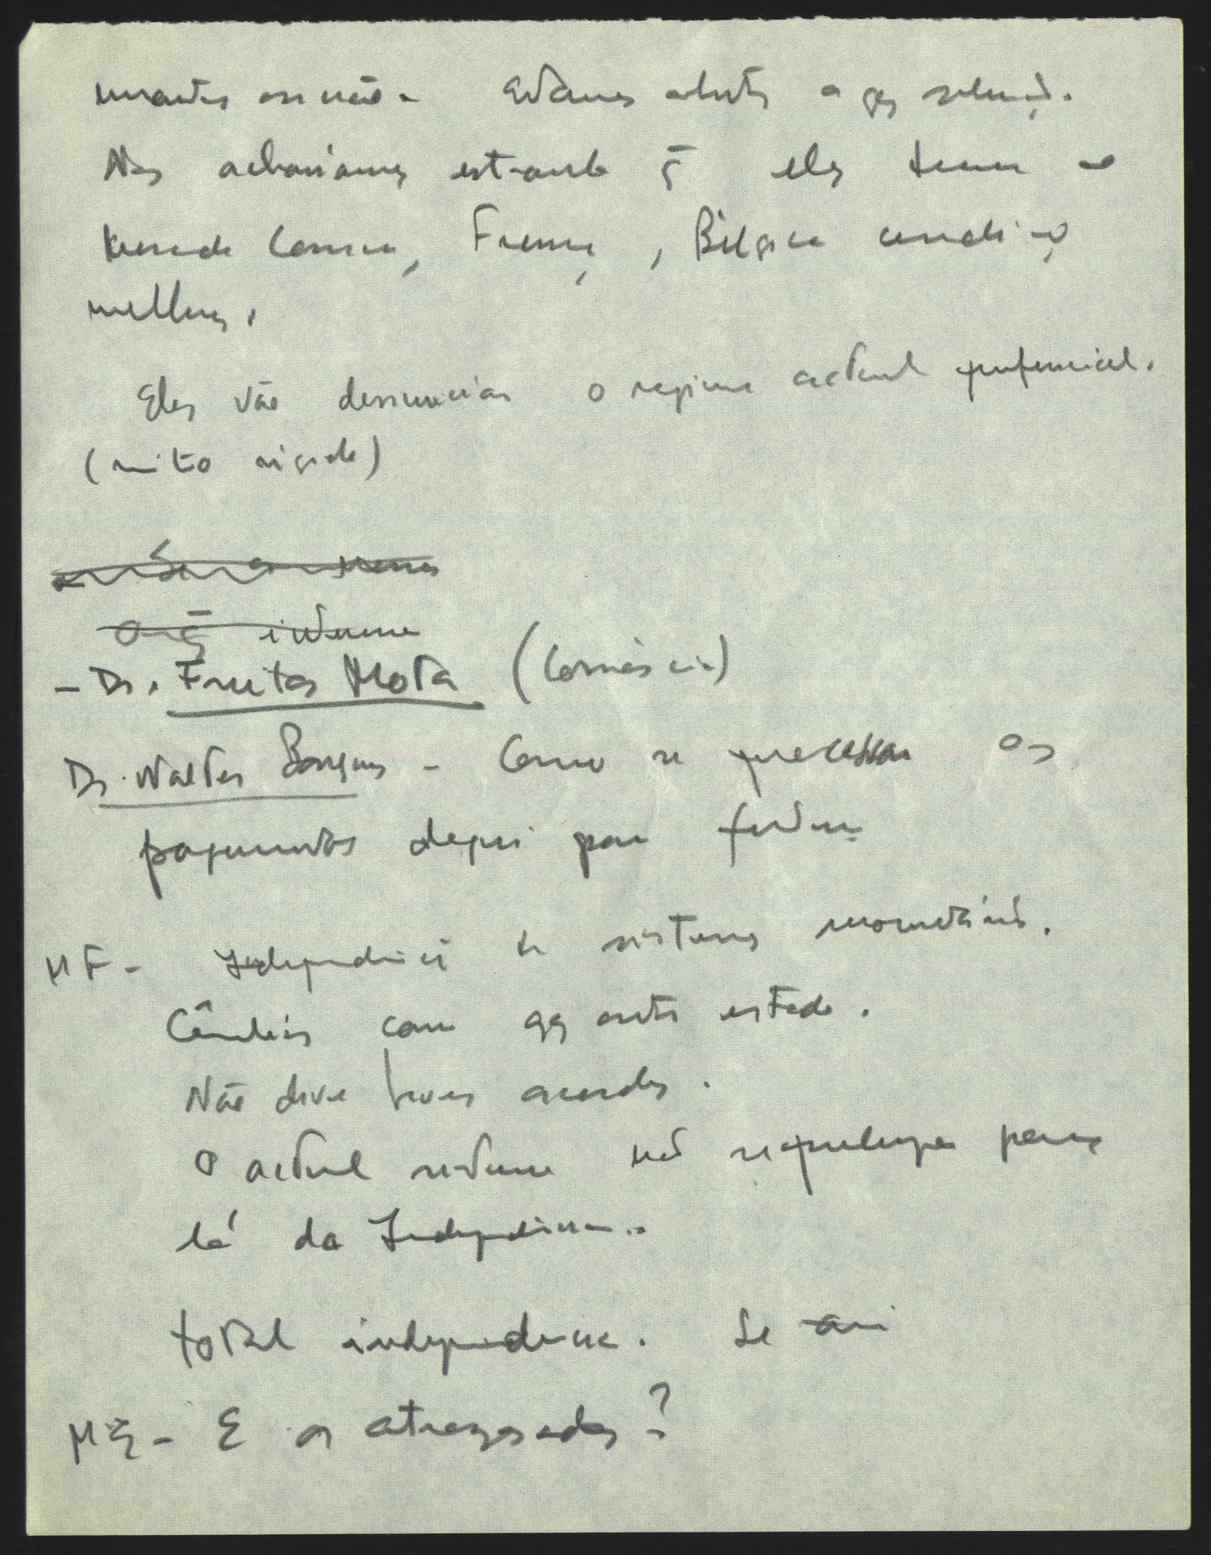 ou não - Estamos abertos a qq solução.
Nós achávamos estranho q̃ eles tenham no
Mercado Comum, França, Bélgica condição
melhores.
Eles vão denunciar o regime actual preferencial.
(muito rígido)
Org̃ interna
- Dr. Freitas Mota (Comércio)
Dr. Walter Marques - Como se processam os
pagamentos depois para futuro
MF - Independência de sistemas monetários.
Câmbios com qq outro estado.
Não deve haver acordos.
O actual sistema não se prolonga para
lá da Independência.
total independência. Se
MẼ - E os atrazados?